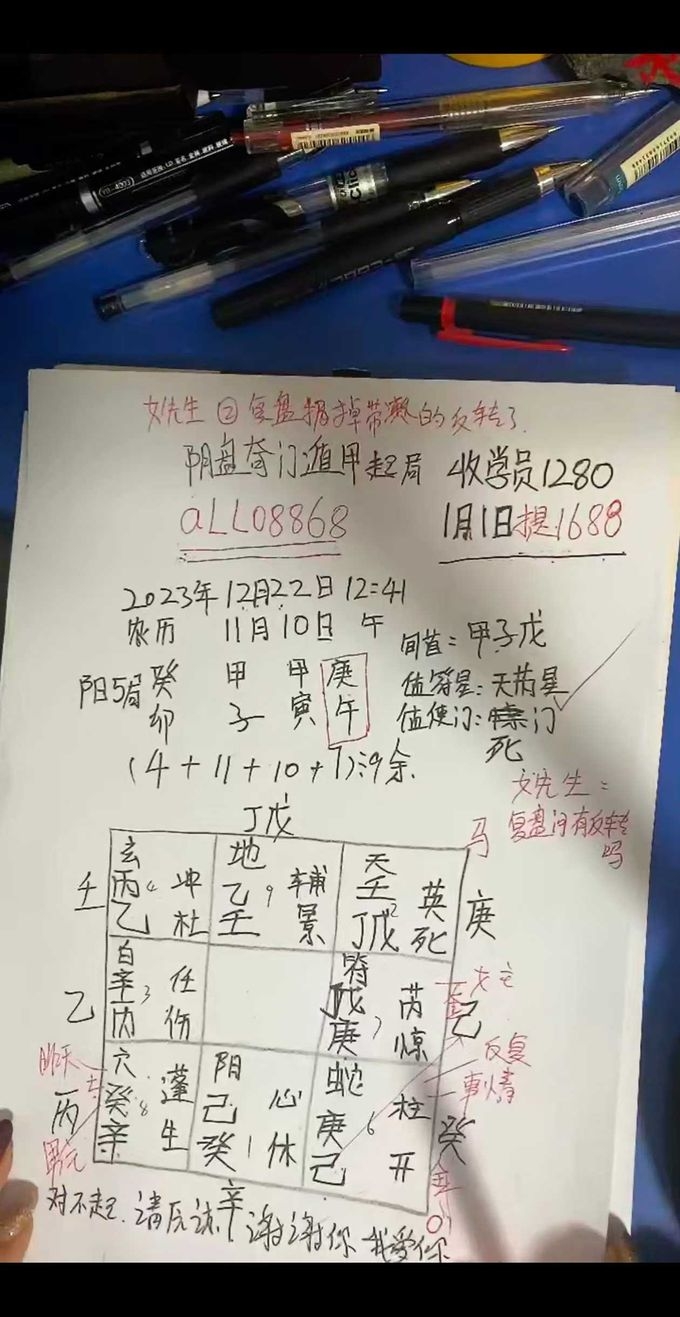 女先生②复盘捐掉带票的反转了
阴盘奇门遁甲起局 收学员1280
aLL08868 1月1日提1688
2023年12月22日12:41
农历 11月10日 午
旬首:甲子戊
阳5局 癸 甲 甲 庚
值符星:天芮星
卯 子 寅 午
值使门:门
死
(4+11+10+7)÷9余
女先生:
复盘没有反转
吗
丁戊
马
壬
玄 地 天
丙4 冲 乙9 辅 壬 英
乙 杜 壬 景 丁戊2 死
庚
白 符
乙
辛3 任 丁戊 芮
丙 伤 庚7 惊
己
女主
反复
事情
昨天
丙
男元
穴 阴 蛇
癸8 蓬 己 心 庚6 柱
辛 生 癸1 休 己 开
癸
辛
对不起.请原谅 谢谢你 我爱你